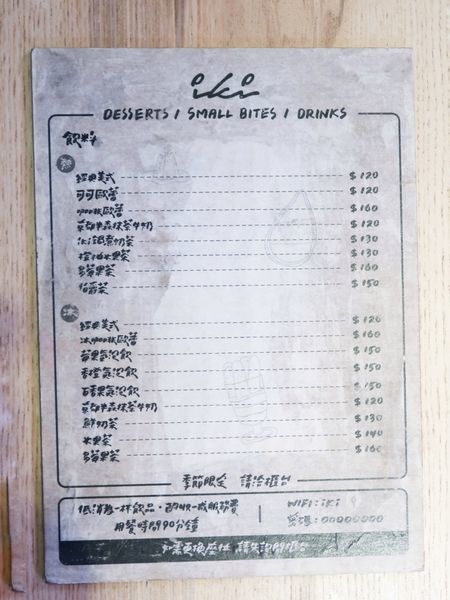 iki
DESSERTS / SMALL BITES / DRINKS
飲料
熱
經典美式 $120
可可歐蕾 $120
咖啡歐蕾 $160
京都森抹茶牛奶 $120
iki鍋煮奶茶 $130
水果茶 $130
多莓果茶 $160
伯爵茶 $150
冰
經典美式 $120
冰咖啡歐蕾 $160
莓果氣泡飲 $150
香橙氣泡飲 $150
百香果氣泡飲 $150
京都森抹茶牛奶 $120
鮮奶茶 $130
水果茶 $140
多莓果茶 $160
季節限定 請洽櫃台
低消為一杯飲品・酌收一成服務費
用餐時間90分鐘
WIFI : iki
密碼 : 00000000
如需更換座位 請先詢問櫃台